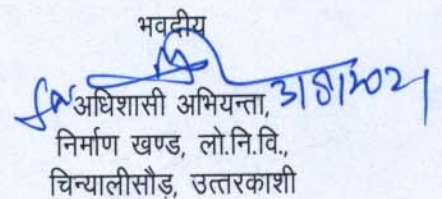 भवदीय
for अधिशासी अभियन्ता,
निर्माण खण्ड, लो.नि.वि.,
चिन्यालीसौड़, उत्तरकाशी